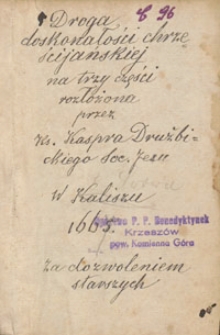 8 96
Droga
doskonałości chrze
ścijańskiej
na trzy części
rozłożona
przez
Ks. Kaspra Drużbi-
ckiego Soc. Jesu
W Kaliszu
1665.
P. P. Benedyktynek
Krzeszów
pow. Kamienna Góra
za dozwoleniem
starszych